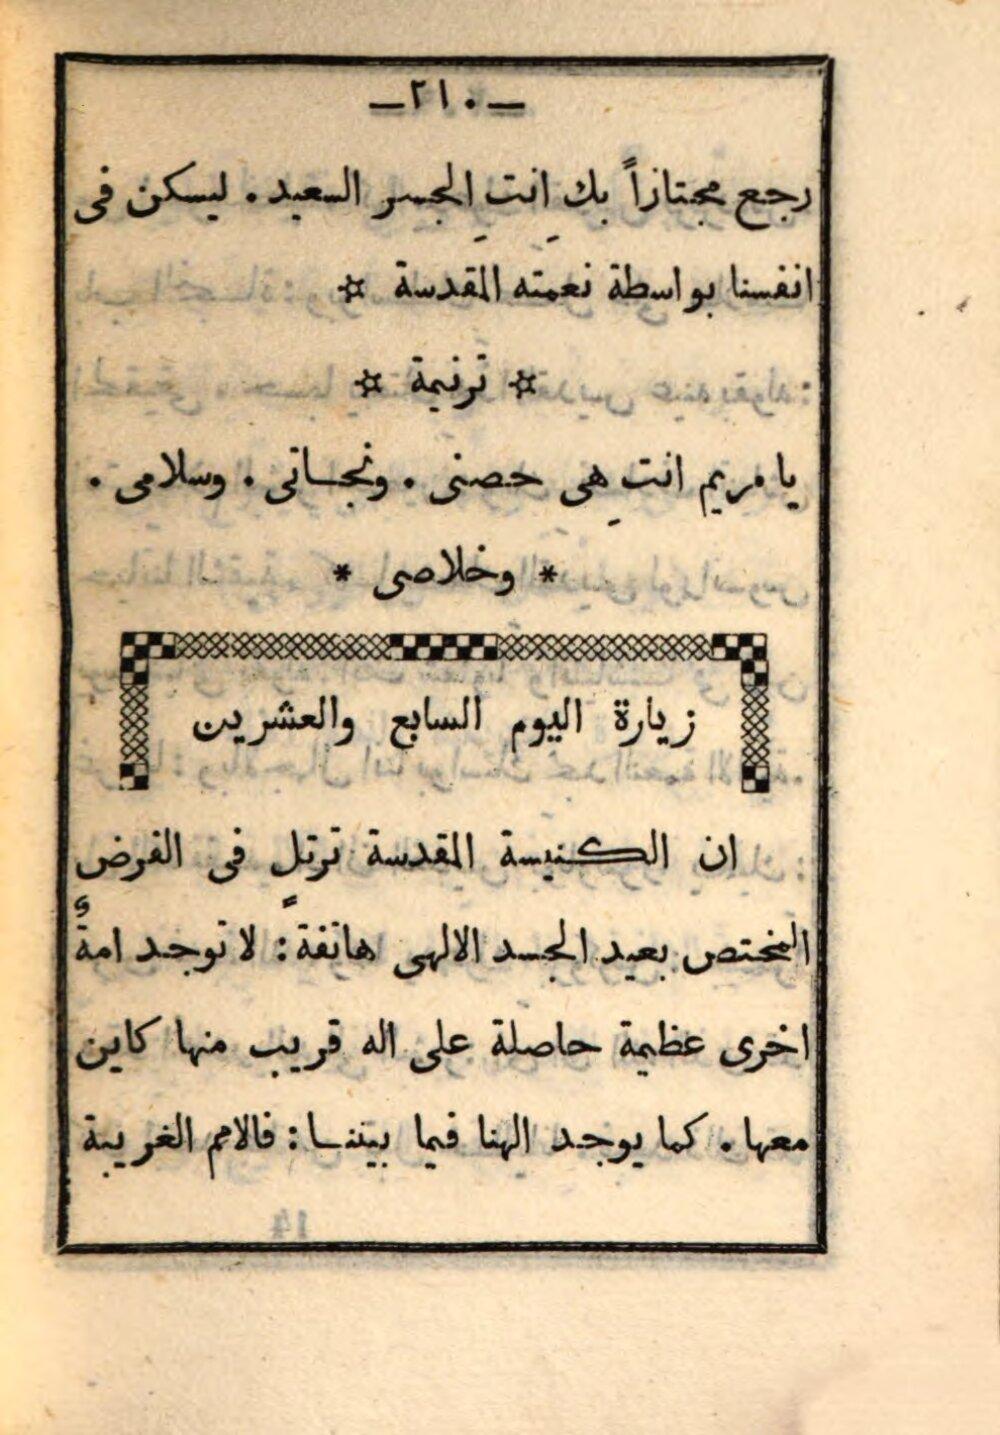 —٢١٠—
رجع مجتازاً بكِ انتِ الجسر السعيد. ليسكن فى
انفسنا بواسطة نعمته المقدسة ¤
¤ ترنيمة ¤
يا مريم انتِ هى حصنى. ونجاتى. وسلامى.
* وخلاصى *
زيارة اليوم السابع والعشرين
ان الكنيسة المقدسة ترتل فى الفرض
المختص بعيد الجسد الالهى هاتفةً: لا توجد امةٌ
اخرى عظيمة حاصلة على اله قريب منها كاين
معها. كما يوجد الهنا فيما بيننا: فالامم الغريبة